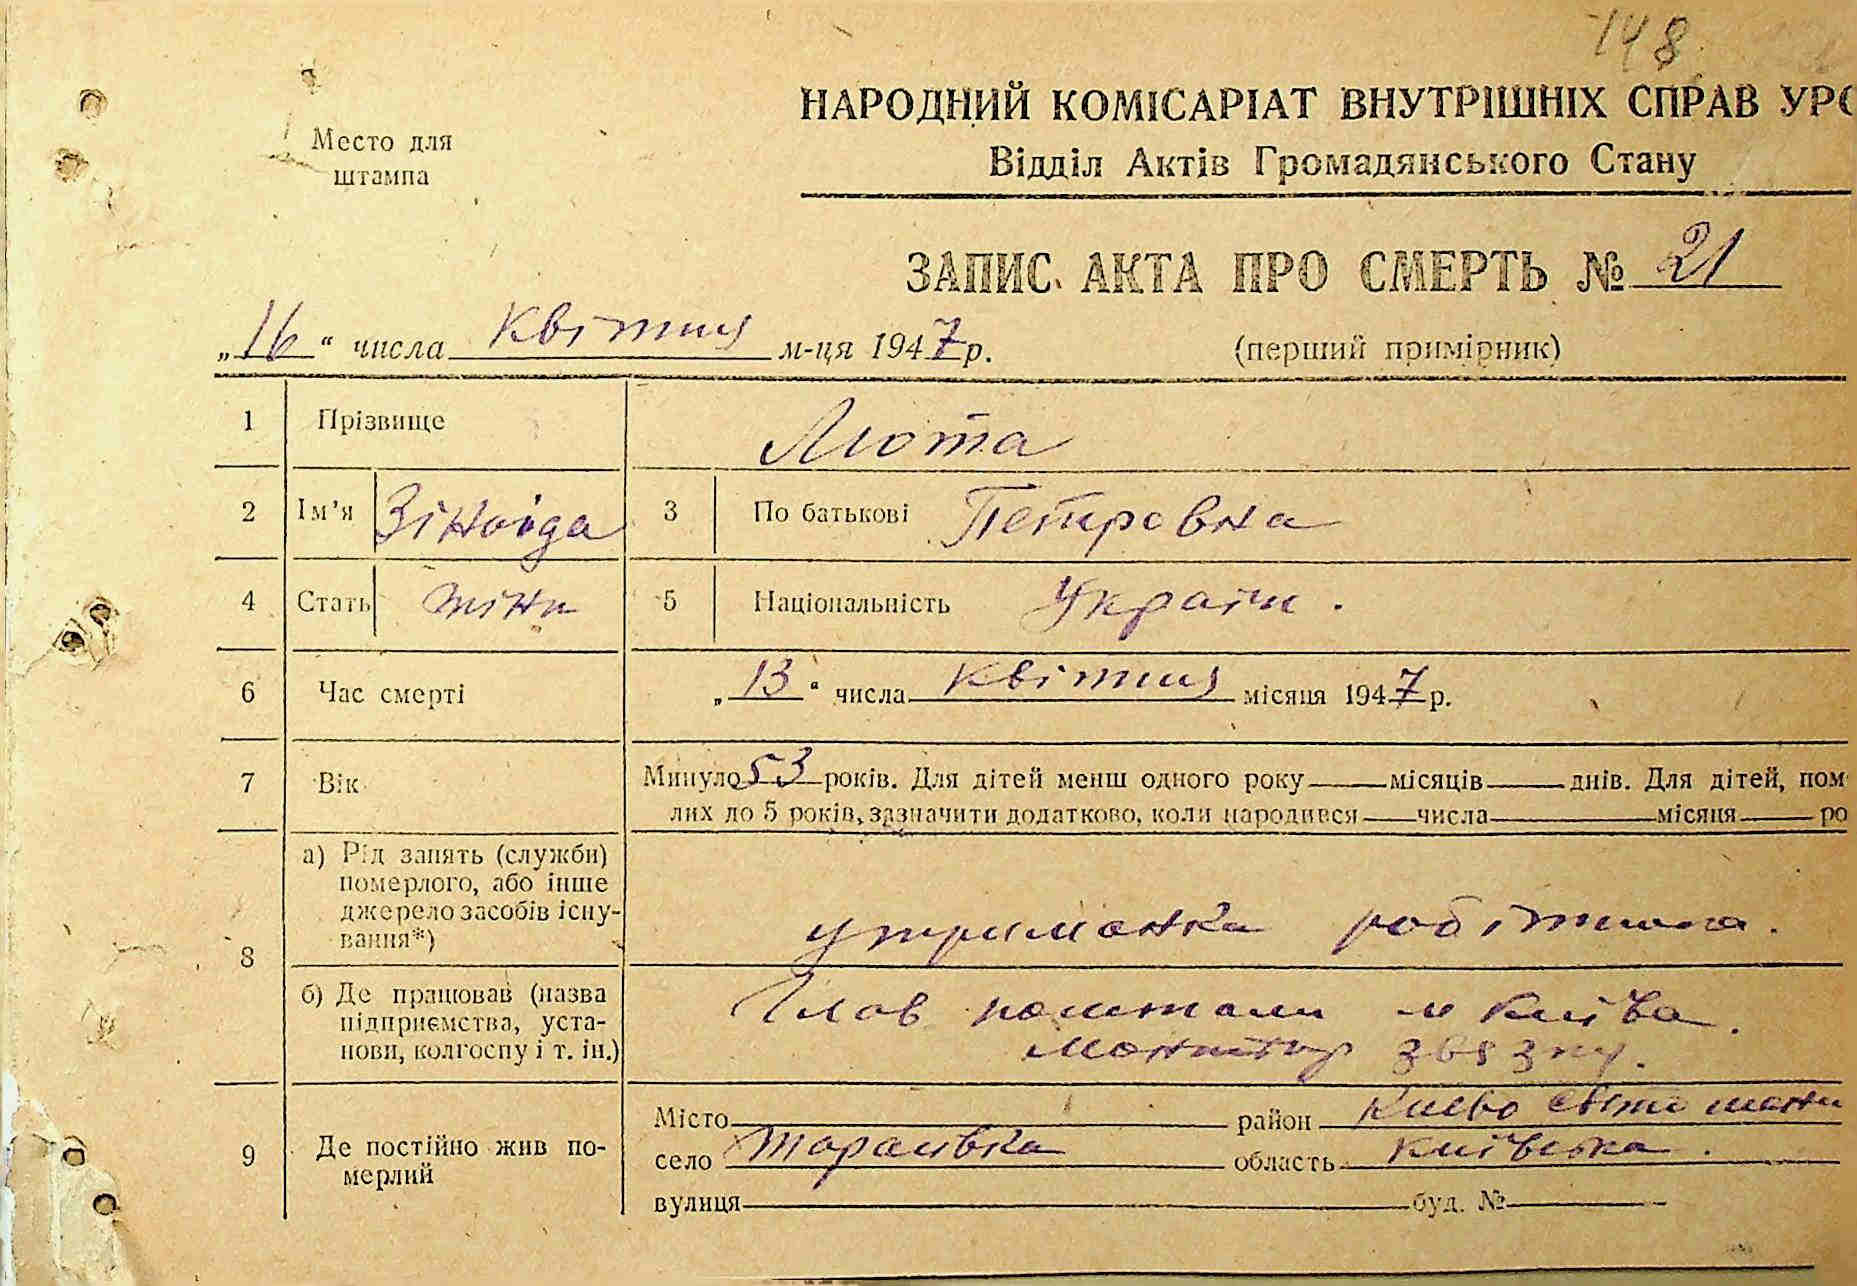 148
НАРОДНИЙ КОМІСАРІАТ ВНУТРІШНІХ СПРАВ УРС
Відділ Актів Громадянського Стану
Место для
штампа
ЗАПИС АКТА ПРО СМЕРТЬ № 21
„16“ числа квітня м-ця 1947 р.
(перший примірник)
1 Прізвище Люта
2 Ім'я Зіноіда 3 По батькові Петровна
4 Стать жіни 5 Національність Україн.
6 Час смерті „13“ числа квітня місяця 1947 р.
7 Вік Минуло 53 років. Для дітей менш одного року місяців днів. Для дітей, пом
лих до 5 років, зазначити додатково, коли народився числа місяця ро
8 а) Рід занять (служби)
померлого, або інше
джерело засобів існу-
вання*)
утриманка робітника.
б) Де працював (назва
підприємства, уста-
нови, колгоспу і т. ін.)
Глав поштамт м Київа.
звязку.
9 Де постійно жив по-
мерлий
Місто район Киево Святошин
село Тарасівка область Київська.
вулиця буд. №